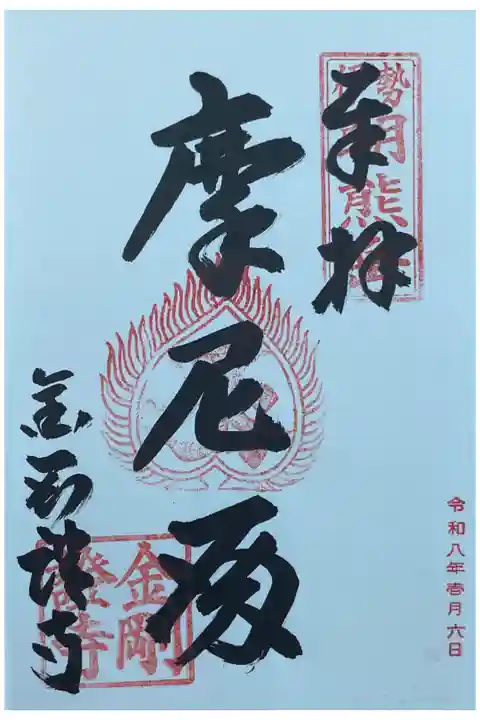 奉拝
朝熊
摩尼殿
金剛證寺
金剛
證寺
令和八年壱月六日